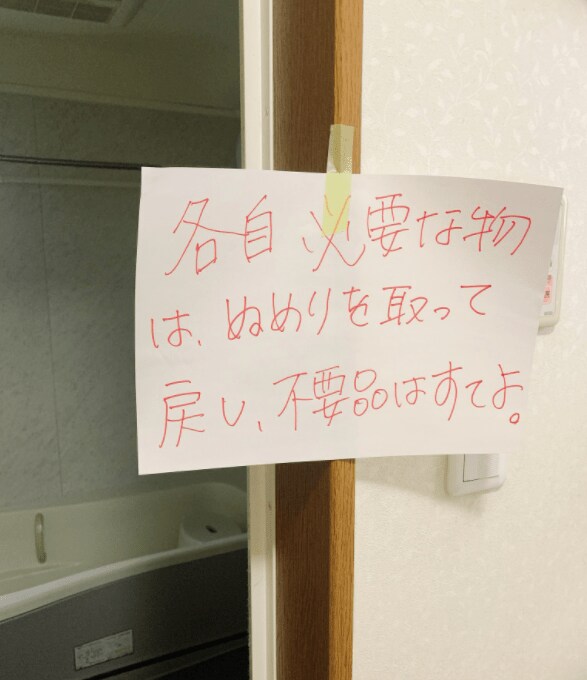 各自 必要な物
は、ぬめりを取って
戻し、不要品はすてよ。